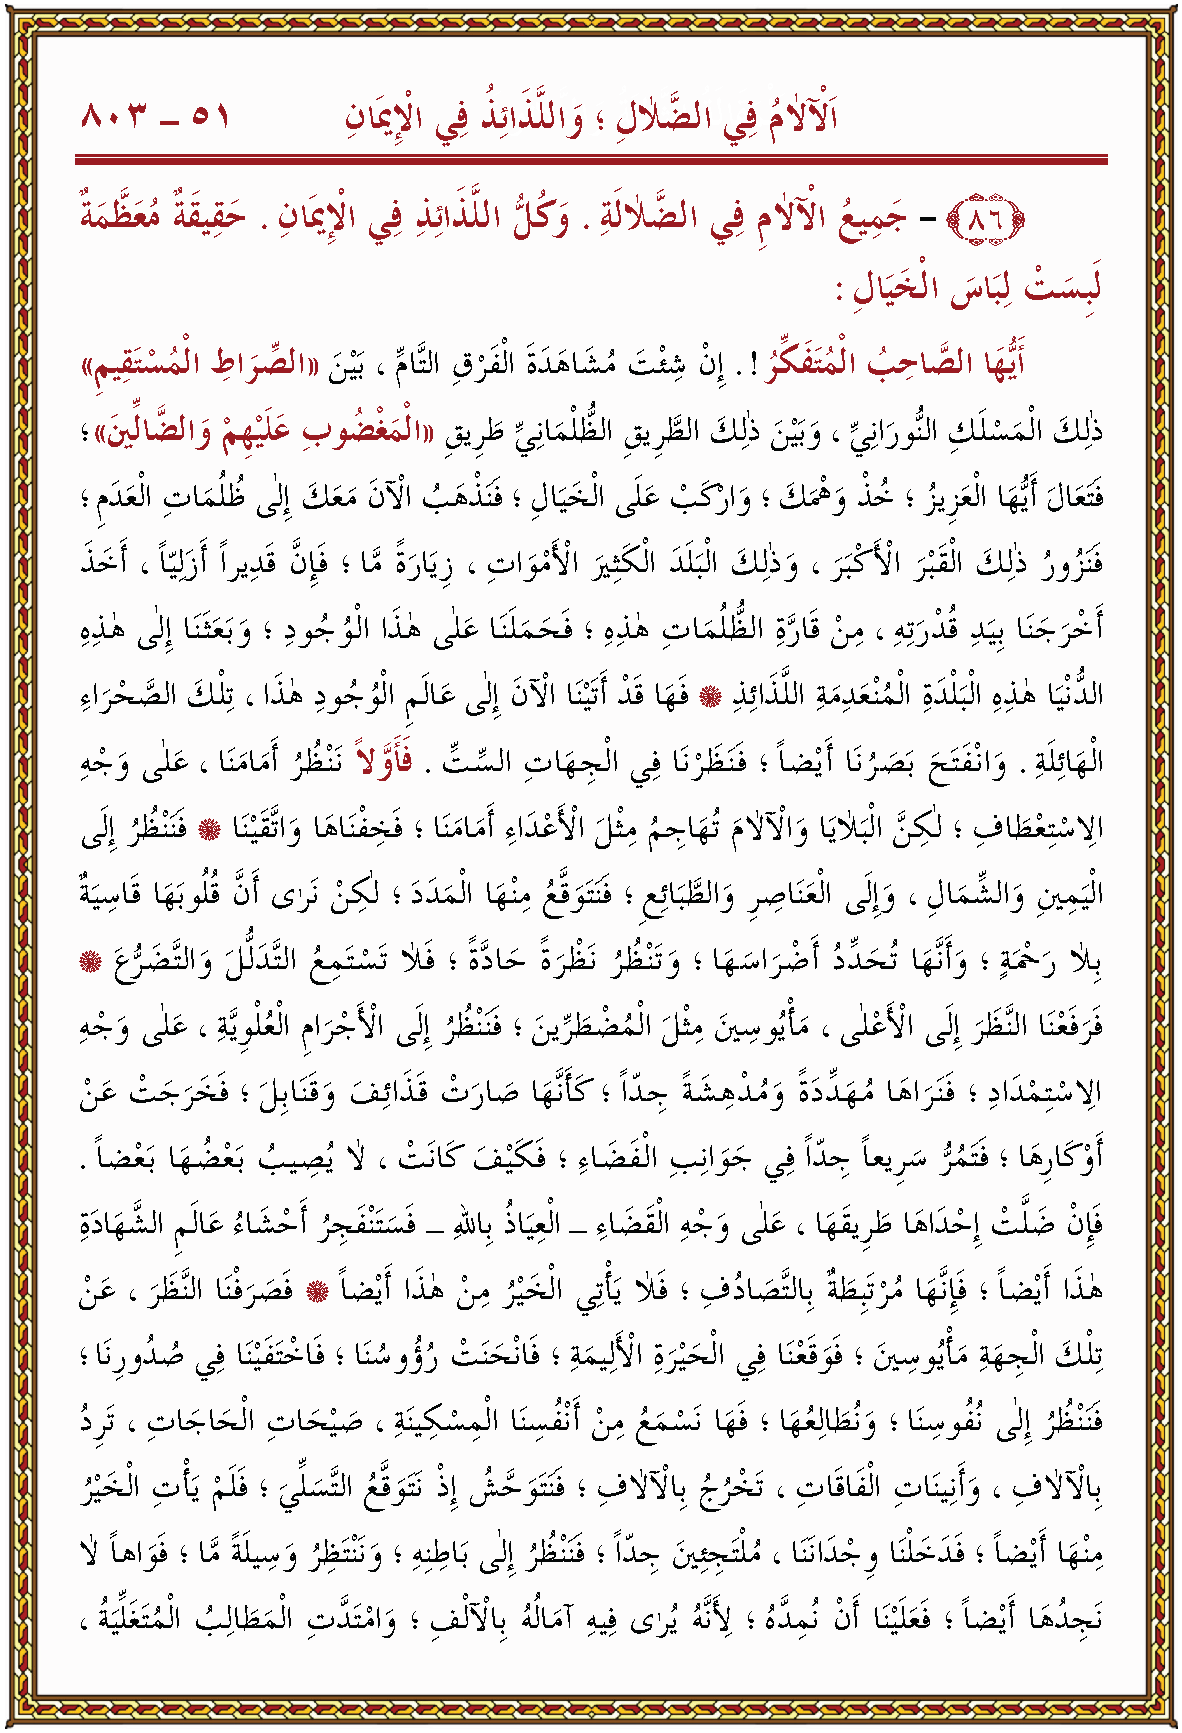 اَلْآلٰامُ فِي الضَّلٰالِ ؛ وَاللَّذَائِذُ فِي الْإِيمَانِ ٥١ ـ ٨٠٣
﴿٨٦﴾ - جَمِيعُ الْآلٰامِ فِي الضَّلٰالَةِ . وَكُلُّ اللَّذَائِذِ فِي الْإِيمَانِ . حَقِيقَةٌ مُعَظَّمَةٌ
لَبِسَتْ لِبَاسَ الْخَيَالِ :
أَيُّهَا الصَّاحِبُ الْمُتَفَكِّرُ ! . إِنْ شِئْتَ مُشَاهَدَةَ الْفَرْقِ التَّامِّ ، بَيْنَ «الصِّرَاطِ الْمُسْتَقِيمِ»
ذٰلِكَ الْمَسْلَكِ النُّورَانِيِّ ، وَبَيْنَ ذٰلِكَ الطَّرِيقِ الظُّلْمَانِيِّ طَرِيقِ «الْمَغْضُوبِ عَلَيْهِمْ وَالضَّالِّينَ» ؛
فَتَعَالَ أَيُّهَا الْعَزِيزُ ؛ خُذْ وَهْمَكَ ؛ وَارْكَبْ عَلَى الْخَيَالِ ؛ فَنَذْهَبُ الْآنَ مَعَكَ إِلٰى ظُلُمَاتِ الْعَدَمِ ؛
فَنَزُورُ ذٰلِكَ الْقَبْرَ الْأَكْبَرَ ، وَذٰلِكَ الْبَلَدَ الْكَثِيرَ الْأَمْوَاتِ ، زِيَارَةً مَّا ؛ فَإِنَّ قَدِيراً أَزَلِيّاً ، أَخَذَ
أَخْرَجَنَا بِيَدِ قُدْرَتِهِ ، مِنْ قَارَّةِ الظُّلُمَاتِ هٰذِهِ ؛ فَحَمَلَنَا عَلٰى هٰذَا الْوُجُودِ ؛ وَبَعَثَنَا إِلٰى هٰذِهِ
الدُّنْيَا هٰذِهِ الْبَلْدَةِ الْمُنْعَدِمَةِ اللَّذَائِذِ ۞ فَهَا قَدْ أَتَيْنَا الْآنَ إِلٰى عَالَمِ الْوُجُودِ هٰذَا ، تِلْكَ الصَّحْرَاءِ
الْهَائِلَةِ . وَانْفَتَحَ بَصَرُنَا أَيْضاً ؛ فَنَظَرْنَا فِي الْجِهَاتِ السِّتِّ . فَأَوَّلاً نَنْظُرُ أَمَامَنَا ، عَلٰى وَجْهِ
الِاسْتِعْطَافِ ؛ لٰكِنَّ الْبَلٰايَا وَالْآلٰامَ تُهَاجِمُ مِثْلَ الْأَعْدَاءِ أَمَامَنَا ؛ فَخِفْنَاهَا وَاتَّقَيْنَا ۞ فَنَنْظُرُ إِلَى
الْيَمِينِ وَالشِّمَالِ ، وَإِلَى الْعَنَاصِرِ وَالطَّبَائِعِ ؛ فَنَتَوَقَّعُ مِنْهَا الْمَدَدَ ؛ لٰكِنْ نَرٰى أَنَّ قُلُوبَهَا قَاسِيَةٌ
بِلٰا رَحْمَةٍ ؛ وَأَنَّهَا تُحَدِّدُ أَضْرَاسَهَا ؛ وَتَنْظُرُ نَظْرَةً حَادَّةً ؛ فَلٰا تَسْتَمِعُ التَّدَلُّلَ وَالتَّضَرُّعَ ۞
فَرَفَعْنَا النَّظَرَ إِلَى الْأَعْلٰى ، مَأْيُوسِينَ مِثْلَ الْمُضْطَرِّينَ ؛ فَنَنْظُرُ إِلَى الْأَجْرَامِ الْعُلْوِيَّةِ ، عَلٰى وَجْهِ
الِاسْتِمْدَادِ ؛ فَنَرَاهَا مُهَدِّدَةً وَمُدْهِشَةً جِدّاً ؛ كَأَنَّهَا صَارَتْ قَذَائِفَ وَقَنَابِلَ ؛ فَخَرَجَتْ عَنْ
أَوْكَارِهَا ؛ فَتَمُرُّ سَرِيعاً جِدّاً فِي جَوَانِبِ الْفَضَاءِ ؛ فَكَيْفَ كَانَتْ ، لٰا يُصِيبُ بَعْضُهَا بَعْضاً .
فَإِنْ ضَلَّتْ إِحْدَاهَا طَرِيقَهَا ، عَلٰى وَجْهِ الْقَضَاءِ ـ الْعِيَاذُ بِاللهِ ـ فَسَتَنْفَجِرُ أَحْشَاءُ عَالَمِ الشَّهَادَةِ
هٰذَا أَيْضاً ؛ فَإِنَّهَا مُرْتَبِطَةٌ بِالتَّصَادُفِ ؛ فَلٰا يَأْتِي الْخَيْرُ مِنْ هٰذَا أَيْضاً ۞ فَصَرَفْنَا النَّظَرَ ، عَنْ
تِلْكَ الْجِهَةِ مَأْيُوسِينَ ؛ فَوَقَعْنَا فِي الْحَيْرَةِ الْأَلِيمَةِ ؛ فَانْحَنَتْ رُؤُوسُنَا ؛ فَاخْتَفَيْنَا فِي صُدُورِنَا ؛
فَنَنْظُرُ إِلٰى نُفُوسِنَا ؛ وَنُطَالِعُهَا ؛ فَهَا نَسْمَعُ مِنْ أَنْفُسِنَا الْمِسْكِينَةِ ، صَيْحَاتِ الْحَاجَاتِ ، تَرِدُ
بِالْآلٰافِ ، وَأَنِينَاتِ الْفَاقَاتِ ، تَخْرُجُ بِالْآلٰافِ ؛ فَنَتَوَحَّشُ إِذْ نَتَوَقَّعُ التَّسَلِّيَ ؛ فَلَمْ يَأْتِ الْخَيْرُ
مِنْهَا أَيْضاً ؛ فَدَخَلْنَا وِجْدَانَنَا ، مُلْتَجِئِينَ جِدّاً ؛ فَنَنْظُرُ إِلٰى بَاطِنِهِ ؛ وَنَنْتَظِرُ وَسِيلَةً مَّا ؛ فَوَاهاً لٰا
نَجِدُهَا أَيْضاً ؛ فَعَلَيْنَا أَنْ نُمِدَّهُ ؛ لِأَنَّهُ يُرٰى فِيهِ آمَالُهُ بِالْآلْفِ ؛ وَامْتَدَّتِ الْمَطَالِبُ الْمُتَغَلِّيَةُ ،